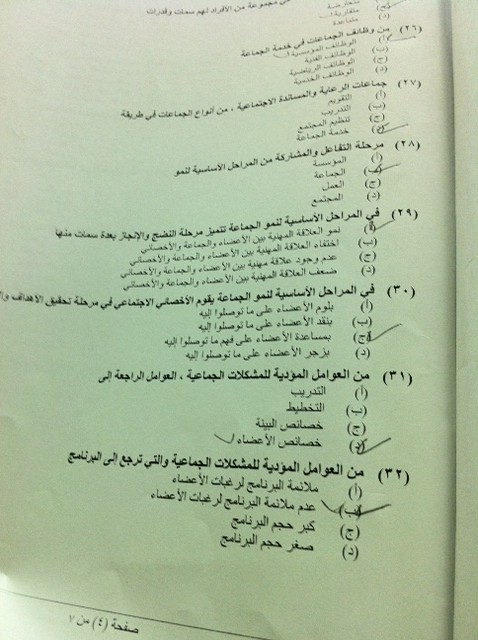 في مجموعة من الأفراد لهم سمات وقدرات
متعارضة
(ج) متقاربة
(د) متباعدة
(٢٦) من وظائف الجماعات في خدمة الجماعة
(أ) الوظائف المؤسسية
(ب) الوظائف الفنية
(ج) الوظائف الرياضية
(د) الوظائف الخدمية
(٢٧) جماعات الرعاية والمساندة الاجتماعية ، من أنواع الجماعات في طريقة
(أ) التقويم
(ب) التدريب
(ج) تنظيم المجتمع
(د) خدمة الجماعة
(٢٨) مرحلة التفاعل والمشاركة من المراحل الأساسية لنمو
(أ) المؤسسة
(ب) الجماعة
(ج) العمل
(د) المجتمع
(٢٩) في المراحل الأساسية لنمو الجماعة تتميز مرحلة النضج والإنجاز بعدة سمات منها
(أ) نمو العلاقة المهنية بين الأعضاء والجماعة والأخصائي
(ب) اختفاء العلاقة المهنية بين الأعضاء والجماعة والأخصائي
(ج) عدم وجود علاقة مهنية بين الأعضاء والجماعة والأخصائي
(د) ضعف العلاقة المهنية بين الأعضاء والجماعة والأخصائي
(٣٠) في المراحل الأساسية لنمو الجماعة يقوم الأخصائي الاجتماعي في مرحلة تحقيق الأهداف
(أ) بلوم الأعضاء على ما توصلوا إليه
(ب) بنقد الأعضاء على ما توصلوا إليه
(ج) بمساعدة الأعضاء على فهم ما توصلوا إليه
(د) بزجر الأعضاء على ما توصلوا إليه
(٣١) من العوامل المؤدية للمشكلات الجماعية ، العوامل الراجعة إلى
(أ) التدريب
(ب) التخطيط
(ج) خصائص البيئة
(د) خصائص الأعضاء
(٣٢) من العوامل المؤدية للمشكلات الجماعية والتي ترجع إلى البرنامج
(أ) ملائمة البرنامج لرغبات الأعضاء
(ب) عدم ملائمة البرنامج لرغبات الأعضاء
(ج) كبر حجم البرنامج
(د) صغر حجم البرنامج
صفحة (٤) من ٧